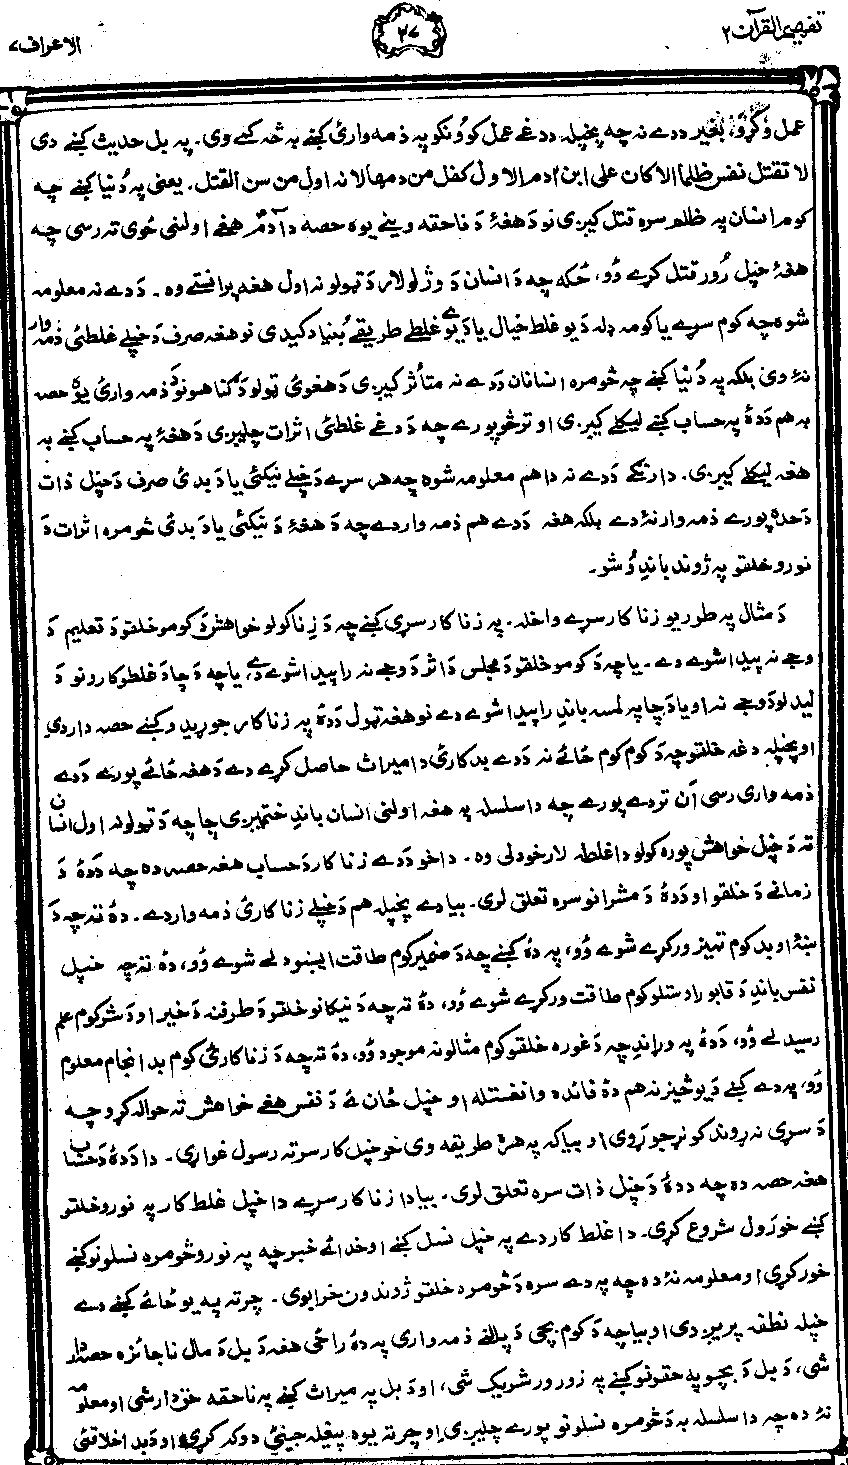 تفهيم القرآن ۲
۲۷
الاعراف ۷
عمل وګړو، بغير ددے نه چه پخپله ددغے عمل کوونکو په ذمه وارئ کښے به څه کمے وی. په بل حديث کښے دی
لا تقتل نفس ظلما الا کان علی ابن ادم الاول کفل من دمها لانه اول من سن القتل. يعنی په دُنيا کښے چه
کوم انسان په ظلم سره قتل کيږی نو دَهغهٔ دَ ناحقه وينے يوه حصه دآدمؑ هغے اولنی ځوی ته رسی چه
هغهٔ خپل رُور قتل کړے وُو، ځکه چه دَ انسان دَ وژلو لار دَ ټولو نه اول هغه پرانستے وه. دَدے نه معلومه
شوه چه کوم سړے يا کومه ډله دَيو غلط خيال يا دَيوے غلطے طريقے بُنياد کيدی نو هغه صرف دَخپلے غلطئ ذمه وار
نهٔ وی بلکه په دُنيا کښے چه څومره انسانان دَدے نه متأثر کيږی دَهغوئ ټولو دَ ګناهونو دَ ذمه وارئ يوه حصه
به هم دَدهٔ په حساب کښے ليکلے کيږی او تر څو پورے چه دَدغے غلطئ اثرات چليږی دَهغهٔ په حساب کښے به
هغه ليکلے کيږی. دارنګے دَدے نه دا هم معلومه شوه چه هر سړے دَخپلے نيکئ يا دَ بدئ صرف دَخپل ذات
دَحده پورے ذمه وار نهٔ دے بلکه هغه دَدے هم ذمه وار دے چه دَ هغهٔ دَ نيکئ يا دَ بدئ څومره اثرات دَ
نورو خلقو په ژوند باندِ وُشو.
دَ مثال په طور يو زنا کار سړے واخله. په زنا کار سړی کښے چه دَ زنا کولو خواهش دَ کومو خلقو دَ تعليم دَ
وجے نه پيدا شوے دے. يا چه دَ کومو خلقو دَ مجلس دَ اثر دَ وجے نه راپيدا شوے دے، يا چه دَ چا دَ غلطو کارونو دَ
ليدلو دَوجے نه او يا دَ چا په لمسه باندِ راپيدا شوے دے نو هغه ټول دَدهٔ په زنا کار جوړيدو کښے حصه دار دی
او پخپله دغه خلقو چه دَ کوم کوم ځائے نه دَدے بدکارئ دا ميراث حاصل کړے دے دَ هغه ځائے پورے دَدے
ذمه واری رسی اَن تردے پورے چه دا سلسله په هغه اولنی انسان باندِ ختميږی چا چه دَ ټولو نه اول انسان
ته دَ خپل خواهش پوره کولو دا غلطه لار خودلی وه. دا خو دَدے زنا کار دَ حساب هغه حصه ده چه دَدهٔ دَ
زمانے دَ خلقو او دَدهٔ دَ مشرانو سره تعلق لری. بيا دے پخپله هم دَخپلے زنا کارئ ذمه وار دے. دهٔ ته چه دَ
ښهٔ او بد کوم تميز ورکړے شوے وُو، په دهٔ کښے چه دَ ضمير کوم طاقت ايښودلے شوے وُو، دهٔ ته چه خپل
نفس باندِ دَ قابو راوستلو کوم طاقت ورکړے شوے وُو، دهٔ ته چه دَ نيکانو خلقو دَ طرفنه دَ خير او دَ شر کوم علم
رسيدلے وُو، دَدهٔ په وړاندِ چه دَ غوره خلقو کوم مثالونه موجود وُو، دهٔ ته چه دَ زنا کارئ کوم بد انجام معلوم
وُو، په دے کښے دَ يو څيز نه هم دهٔ فائده وانخستله او خپل ځان ئے دَ نفس هغے خواهش ته حواله کړو چه
دَ سړی نه ړوند کونړ جوړوی او بيا که په هره طريقه وی خو خپل کار سر ته رسول غواړی. دا دَدهٔ دَحساب
هغه حصه ده چه ددهٔ دَخپل ذات سره تعلق لری. بيا دا زنا کار سړے دا خپل غلط کار په نورو خلقو
کښے خورول شروع کړی. دا غلط کار دے په خپل نسل کښے او خدائے خبر چه په نورو څومره نسلونو کښے
خور کړی او معلومه نهٔ ده چه په دے سره دَ څومره خلقو ژوندون خرابوی. چرته په يو ځائے کښے دے
خپله نطفه پريږدی او بيا چه دَ کوم بچی دَ پالنے ذمه واری په دهٔ راځی هغه دَ بل دَ مال ناجائزه حصه دار
شی، دَ بل دَ بچو په حقونو کښے په زور ورشريک شی، او دَ بل په ميراث کښے په ناحقه حق دار شی او معلومه
نهٔ ده چه دا سلسله به دَ څومره نسلونو پورے چليږی او چرته يوه پيغله جينئ دوکه کړی او دَ بد اخلاقئ